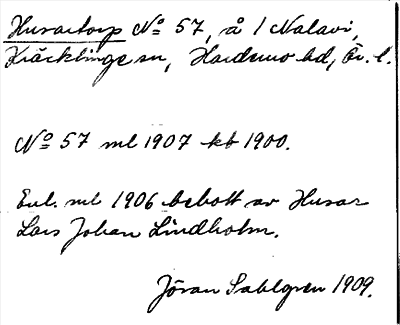 Husartorp No 57, å 1 Nalavi,
Kräcklinge sn, Hardemo hd, Ör. l.
No 57 ml 1907 kb 1900.
Enl. ml 1906 bebott av Husar
Lars Johan Lindholm.
Jöran Sahlgren 1909.